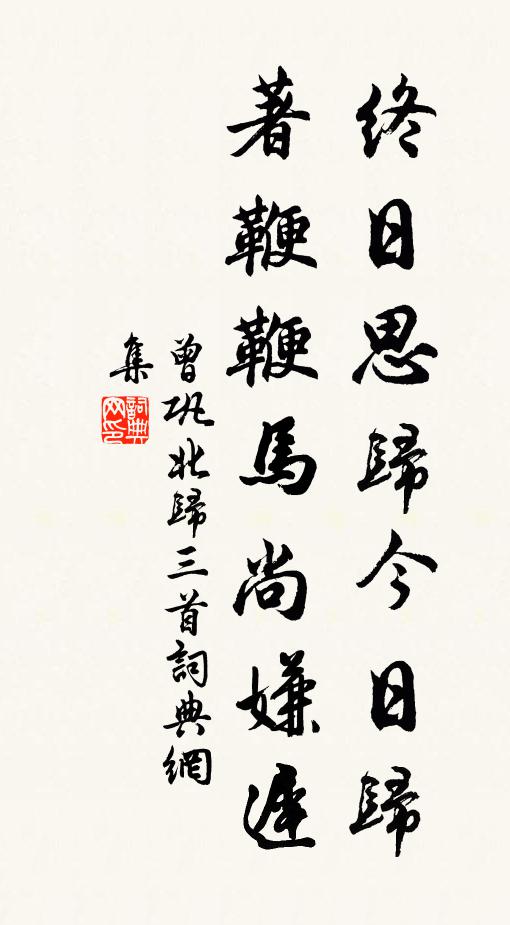 終日思歸今日歸
著鞭鞭馬尚嫌遲
曾巩北歸三首詞典網
集
詞典網印